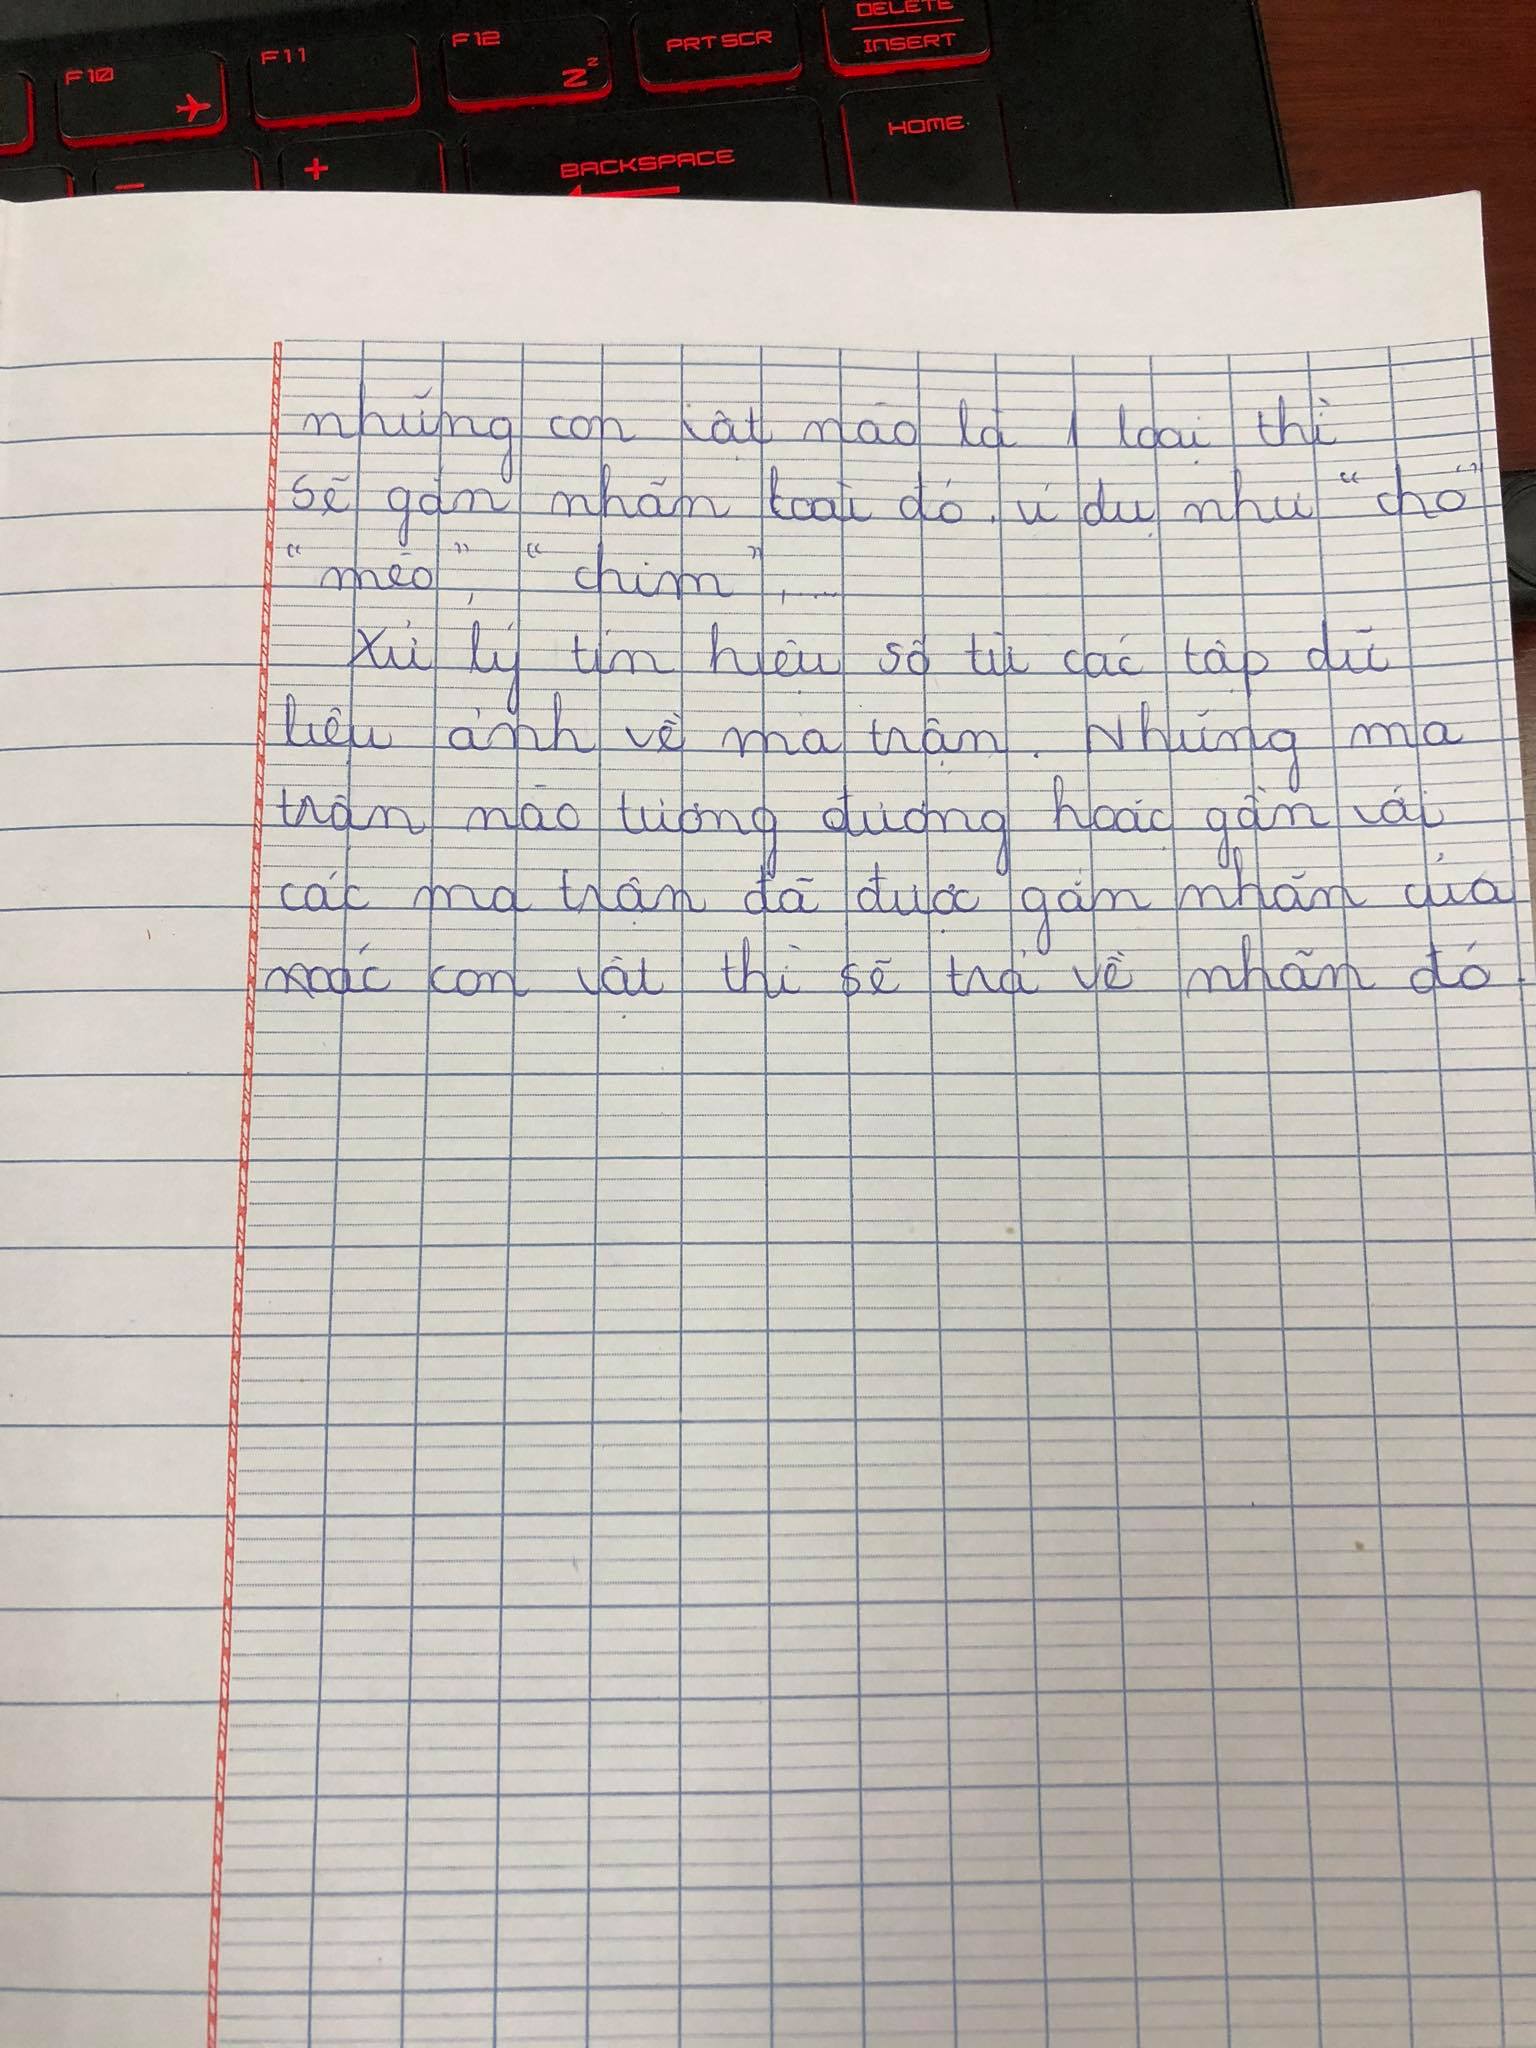 F10
F11
F12
Z z
PRT SCR
DELETE
INSERT
HOME
-
+
BACKSPACE
những con vật nào là 1 loại thì
sẽ gán nhãn loại đó. ví dụ như "chó"
"mèo", "chim",....
Xử lý tín hiệu số từ các tập dữ
liệu ảnh về ma trận. Những ma
trận nào tương đương hoặc gần với
các ma trận đã được gán nhãn của
các con vật thì sẽ trả về nhãn đó.